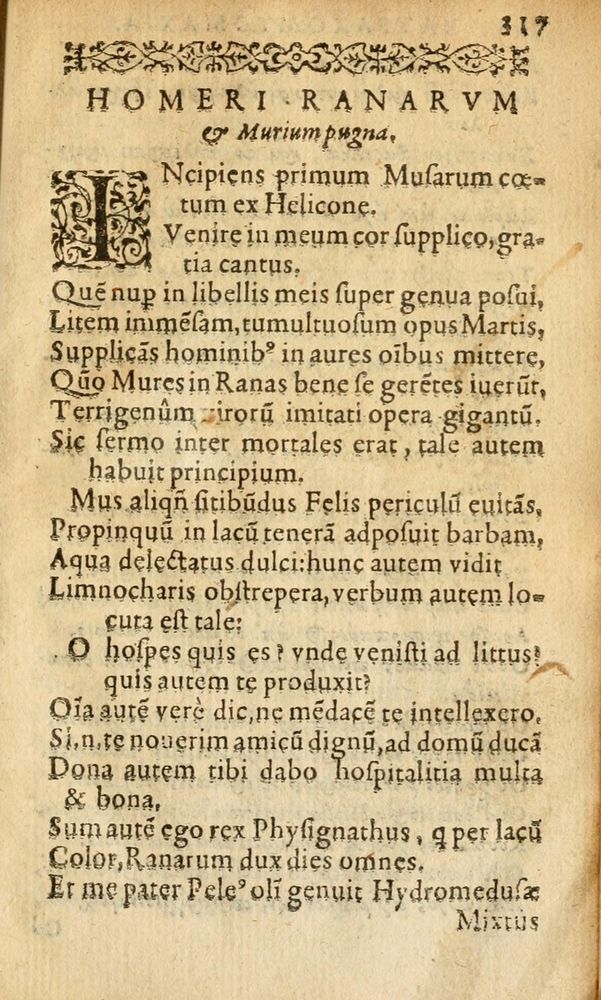 317
HOMERI RANARVM
& Murium pugna.
INcipiens primum Muſarum cœ-
tum ex Helicone.
Venire in meum cor ſupplico, gra-
tia cantus.
Quē nuꝑ in libellis meis ſuper genua poſui,
Litem immēſam, tumultuoſum opus Martis,
Supplicās hominibꝰ in aures oībus mittere,
Quō Mures in Ranas bene ſe gerētes iuerūt,
Terrigenûm virorū imitati opera gigantū.
Sic ſermo inter mortales erat, tale autem
habuit principium.
Mus aliqñ ſitibūdus Felis periculū euitās,
Propinquū in lacū tenerā adpoſuit barbam,
Aqua delectatus dulci: hunc autem vidit
Limnocharis obſtrepera, verbum autem lo-
cuta eſt tale:
O hoſpes quis es? vnde veniſti ad littus?
quis autem te produxit?
Oīa autē verè dic, ne mēdacē te intellexero.
Si.n.te nouerim amicū dignū, ad domū ducā
Dona autem tibi dabo hoſpitalitia multa
& bona,
Sum autē ego rex Phyſignathus, q per lacū
Color, Ranarum dux dies omnes.
Et me pater Peleꝰ olī genuit Hydromeduſæ
Mixtus